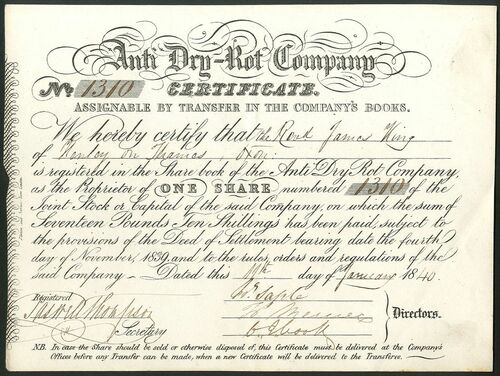 Anti Dry-Rot Company
No. 1310 CERTIFICATE.
ASSIGNABLE BY TRANSFER IN THE COMPANY'S BOOKS.
We hereby certify that the Revd James King
of Henley on Thames, Oxon:
is registered in the Share book of the Anti Dry Rot Company,
as the Proprietor of ONE SHARE numbered 1310 of the
Joint Stock or Capital of the said Company, on which the sum of
Seventeen Pounds Ten Shillings has been paid, subject to
the provisions of the Deed of Settlement bearing date the fourth
day of November, 1839, and to the rules, orders and regulations of the
said Company — Dated this day of January 1840.
Registered
Thompson
Secretary
Directors.
NB. In case the Share should be sold or otherwise disposed of, this Certificate must be delivered at the Company's
Offices before any Transfer can be made, when a new Certificate will be delivered to the Transferee.